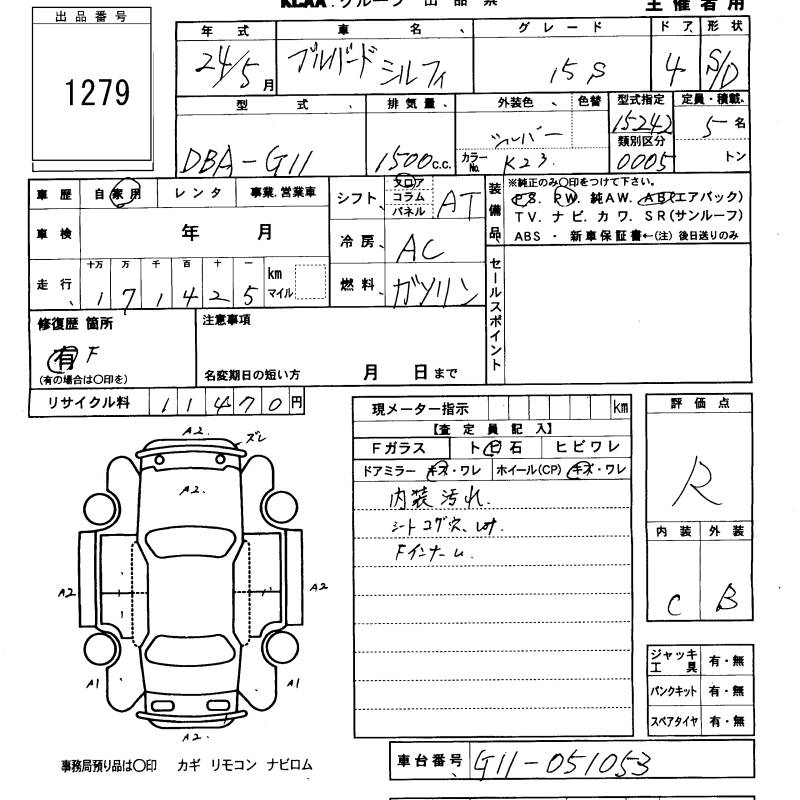 KCAA.グループ 出 品 票
主 催 者 用
出 品 番 号
1279
年 式 車 名 グ レ ー ド ド ア 形 状
24/5月 ブルーバード シルフィ 15 S 4 S/D
型 式 排 気 量 外装色 色替 型式指定 定員・積載
15242 5 名
類別区分
DBA-G11 1500c.c. シルバー カラーNo. K23 0005 トン
車 歴 自 家 用 レ ン タ 事業.営業車
シフト フロア コラム パネル AT
装備品
※純正のみ〇印をつけて下さい。
PS. PW. 純AW. AB(エアバック)
TV. ナ ビ. カ ワ. SR(サンルーフ)
ABS ・ 新車保証書←(注) 後日送りのみ
車 検 年 月
冷 房 AC
走 行 十万 万 千 百 十 一 km マイル
1 7 1 4 2 5
燃 料 ガソリン
セールスポイント
修復歴 箇所
有 F
(有の場合は〇印を)
注意事項
名変期日の短い方 月 日 まで
リサイクル料 1 1 4 7 0 円
現メーター指示 km
【査 定 員 記 入】
Fガラス ト ビ 石 ヒ ビ ワ レ
ドアミラー キズ・ワレ ホイール(CP) キズ・ワレ
内装 汚れ.
シート コゲ穴、
Fインナー ム.
評 価 点
R
内 装 外 装
C B
A2. ズレ
A2.
A2 A2
A1 A1
A2.
ジャッキ 工 具 有・無
パンクキット 有・無
スペアタイヤ 有・無
事務局預り品は〇印 カギ リモコン ナビロム
車台番号 G11-051053